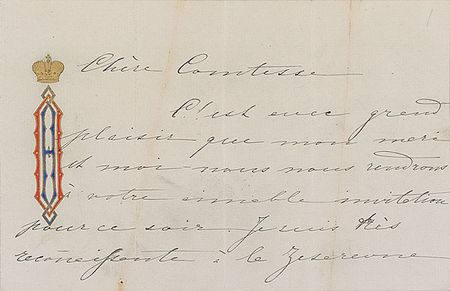 Chère Comtesse
C'est avec grand
plaisir que mon mari
et moi nous nous rendrons
à votre aimable invitation
pour ce soir. Je suis très
reconaissante à la Zesarevne